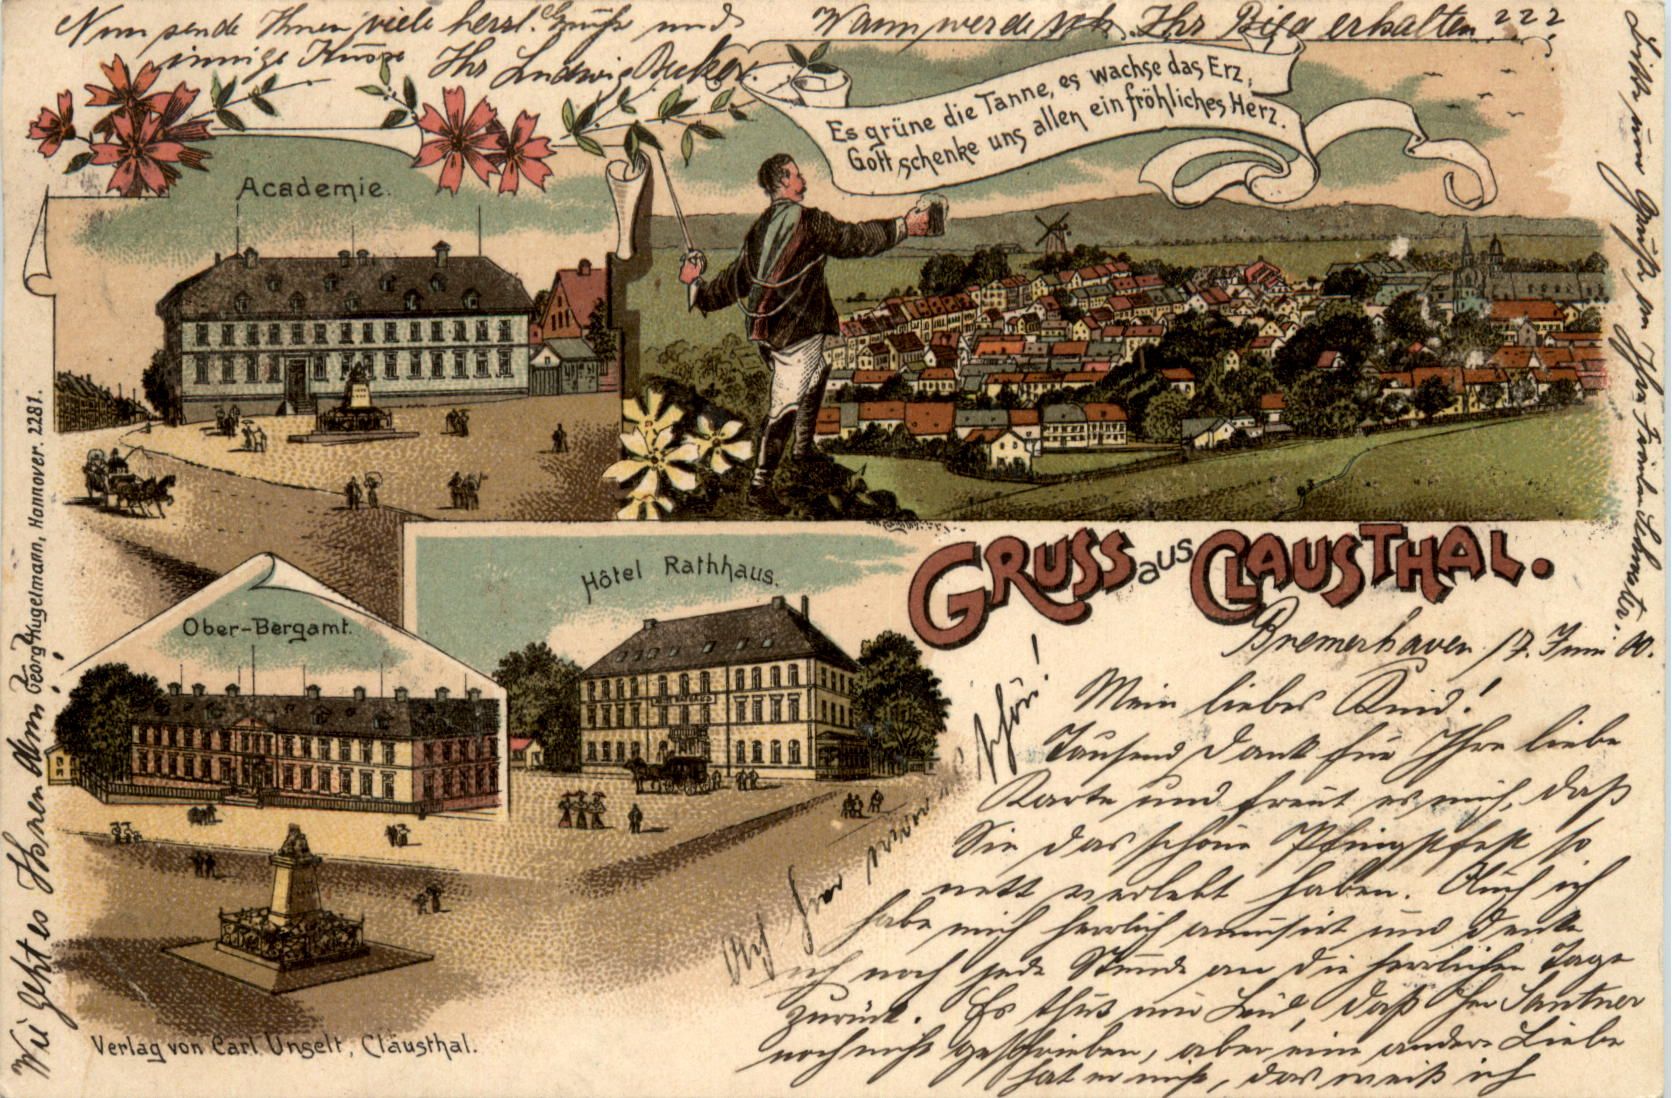 Nun sende Ihnen viele herzl. Grüße und
innige Küsse Ihr Ludwig Becker.
Wann werde ich Ihr Bild erhalten ???
Es grüne die Tanne, es wachse das Erz,
Gott schenke uns allen ein fröhliches Herz.
Academie.
Ober-Bergamt.
Hôtel Rathhaus.
GRUSS aus CLAUSTHAL.
Bremerhaven 17. Juni 00.
Mein liebes Kind!
Tausend Dank für Ihre liebe
Karte und freut es mich, daß
Sie das schöne Pfingstfest so
nett verlebt haben. Auch ich
habe mich herrlich amüsirt und denke
ich noch jede Stunde an die herrlichen Tage
zurück. Es thut mir Leid, daß Herr Santner
noch nicht geschrieben, aber eine andere Liebe
hat er nicht, das weiß ich
schön!
Bitte um Grüße an Ihre Fräulein
Wie geht es Ihnen
Georg Kugelmann, Hannover. 2281.
Verlag von Carl Unselt, Clausthal.